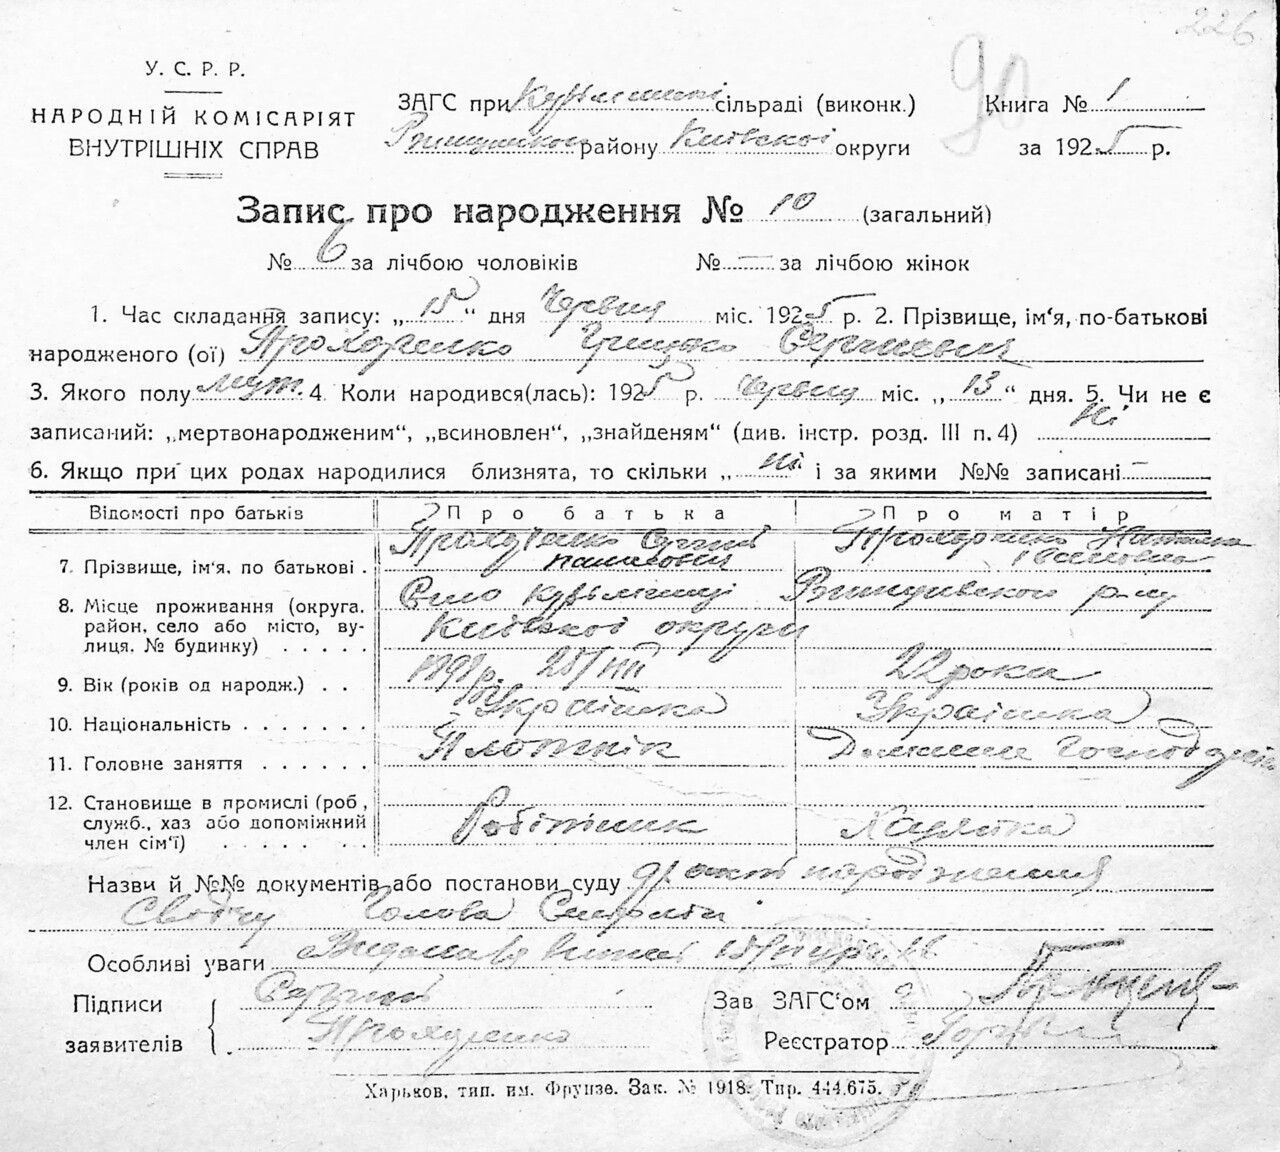 226
90
У. С. Р. Р.
НАРОДНІЙ КОМІСАРІЯТ
ВНУТРІШНІХ СПРАВ
ЗАГС при сільраді (виконк.)
району Київскої округи
Книга № 1
за 1925 р.
Запис про народження № 10 (загальний)
№ 6 за лічбою чоловіків № — за лічбою жінок
1. Час складання запису: „15“ дня Червня міс. 1925 р. 2. Прізвище, ім'я, по-батькові
народженого (ої) Прохоренко Грицько
3. Якого полу муж. 4 Коли народився(лась): 1925 р. Червня міс. „13“ дня. 5. Чи не є
записаний: „мертвонародженим“, „всиновлен“, „знайденям“ (див. інстр. розд. III п. 4) Ні
6. Якщо при цих родах народилися близнята, то скільки „ Ні і за якими №№ записані —
Відомості про батьків Про батька Про матір
7. Прізвище, ім'я, по батькові . Прохоренко Сергій Прохоренко
8. Місце проживання (округа, район, село або місто, вулиця, № будинку) . . . . . Село району
Київскої округи
9. Вік (років од народж.) . . 22 роки
10. Національність . . . . . . . Українка Українка
11. Головне заняття . . . . . . Плотнік Домашне Господ
12. Становище в промислі (роб., служб., хаз або допоміжний член сім'ї) . . . . . Робітник Хазяйка
Назви й №№ документів або постанови суду акт народження
Голова
Особливі уваги
Підписи Сергий Зав ЗАГС'ом
заявителів Прохоренко Реєстратор
Харьков, тип. им. Фрунзе. Зак. № 1918. Тир. 444.675.